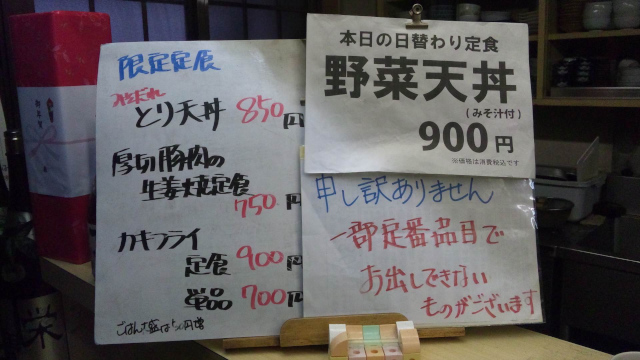 限定定食
みそだれ
とり天丼 850円
厚切豚肉の
生姜焼定食
750円
カキフライ
定食 900円
単品 700円
ごはん大盛は50円増
本日の日替わり定食
野菜天丼
(みそ汁付)
900円
※価格は消費税込です
申し訳ありません
一部定番品目で
お出しできない
ものがございます
栄